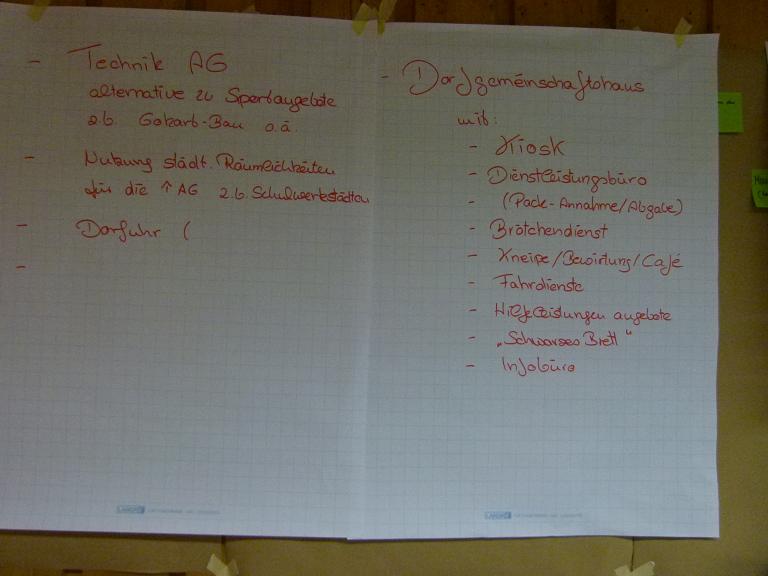 - Technik AG
alternative zu Sportangebote
z.b. Gokart-Bau o.ä.
- Nutzung städt. Räumlichkeiten
für die ↑ AG z.b. Schulwerkstädten
- Dorfuhr (
-
- Dorfgemeinschaftshaus
mit:
- Kiosk
- Dienstleistungsbüro
- (Pack-Annahme/Abgabe)
- Brötchendienst
- Kneipe/Bewirtung/Café
- Fahrdienste
- Hilfeleistungen angebote
- „Schwarzes Brett"
- Infobüro